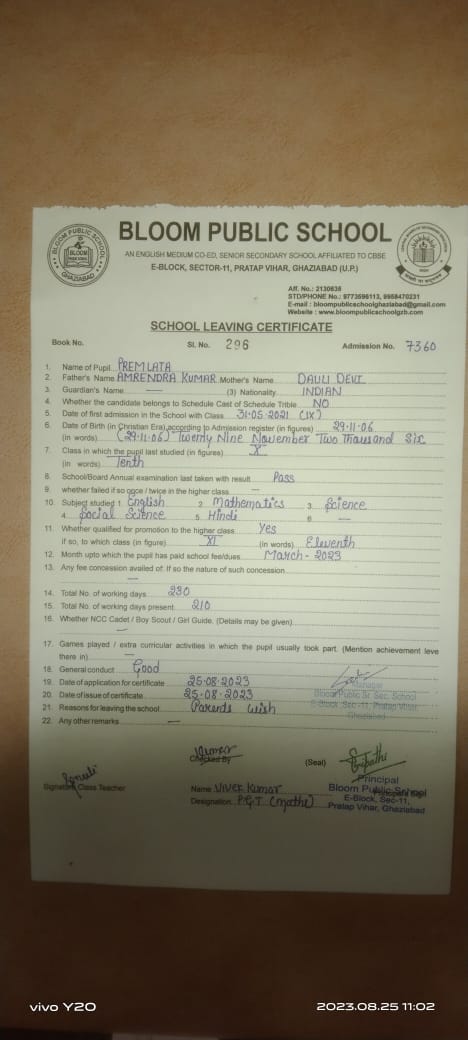 BLOOM PUBLIC SCHOOL
GHAZIABAD
BLOOM
BLOOM PUBLIC SCHOOL
AN ENGLISH MEDIUM CO-ED, SENIOR SECONDARY SCHOOL AFFILIATED TO CBSE
E-BLOCK, SECTOR-11, PRATAP VIHAR, GHAZIABAD (U.P.)
Aff. No.: 2130635
STD/PHONE No.: 9773596113, 9958470231
E-mail : bloompublicschoolghaziabad@gmail.com
Website : www.bloompublicschoolgzb.com
SCHOOL LEAVING CERTIFICATE
Book No. Sl. No. 296 Admission No. 7360
1. Name of Pupil PREMLATA
2. Father's Name AMRENDRA KUMAR Mother's Name DAULI DEVI
3. Guardian's Name — (3) Nationality INDIAN
4. Whether the candidate belongs to Schedule Cast of Schedule Trible NO
5. Date of first admission in the School with Class 31-05-2021 (IX)
6. Date of Birth (in Christian Era) according to Admission register (in figures) 29-11-06
(in words) (29-11-06) Twenty Nine November Two Thousand Six
7. Class in which the pupil last studied (in figures) X
(in words) Tenth
8. School/Board Annual examination last taken with result Pass
9. whether failed if so once / twice in the higher class —
10. Subject studied 1. English 2. Mathematics 3. Science
4. Social Science 5. Hindi 6. —
11. Whether qualified for promotion to the higher class Yes
if so, to which class (in figure) XI (in words) Eleventh
12. Month upto which the pupil has paid school fee/dues March - 2023
13. Any fee concession availed of: If so the nature of such concession
—
14. Total No. of working days 230
15. Total No. of working days present 210
16. Whether NCC Cadet / Boy Scout / Girl Guide. (Details may be given)
—
17. Games played / extra curricular activities in which the pupil usually took part. (Mention achievement leve
there in) —
18. General conduct Good
19. Date of application for certificate 25-08-2023
20. Date of issue of certificate 25-08-2023
21. Reasons for leaving the school Parents wish
22. Any other remarks —
Manager
Bloom Public Sr. Sec. School
E-Block, Sec-11, Pratap Vihar,
Ghaziabad
Checked By (Seal)
Signature Class Teacher
Name Vivek Kumar
Designation P.G.T (Maths)
Principal
Bloom Public School
E-Block, Sec-11,
Pratap Vihar, Ghaziabad
vivo Y20 2023.08.25 11:02